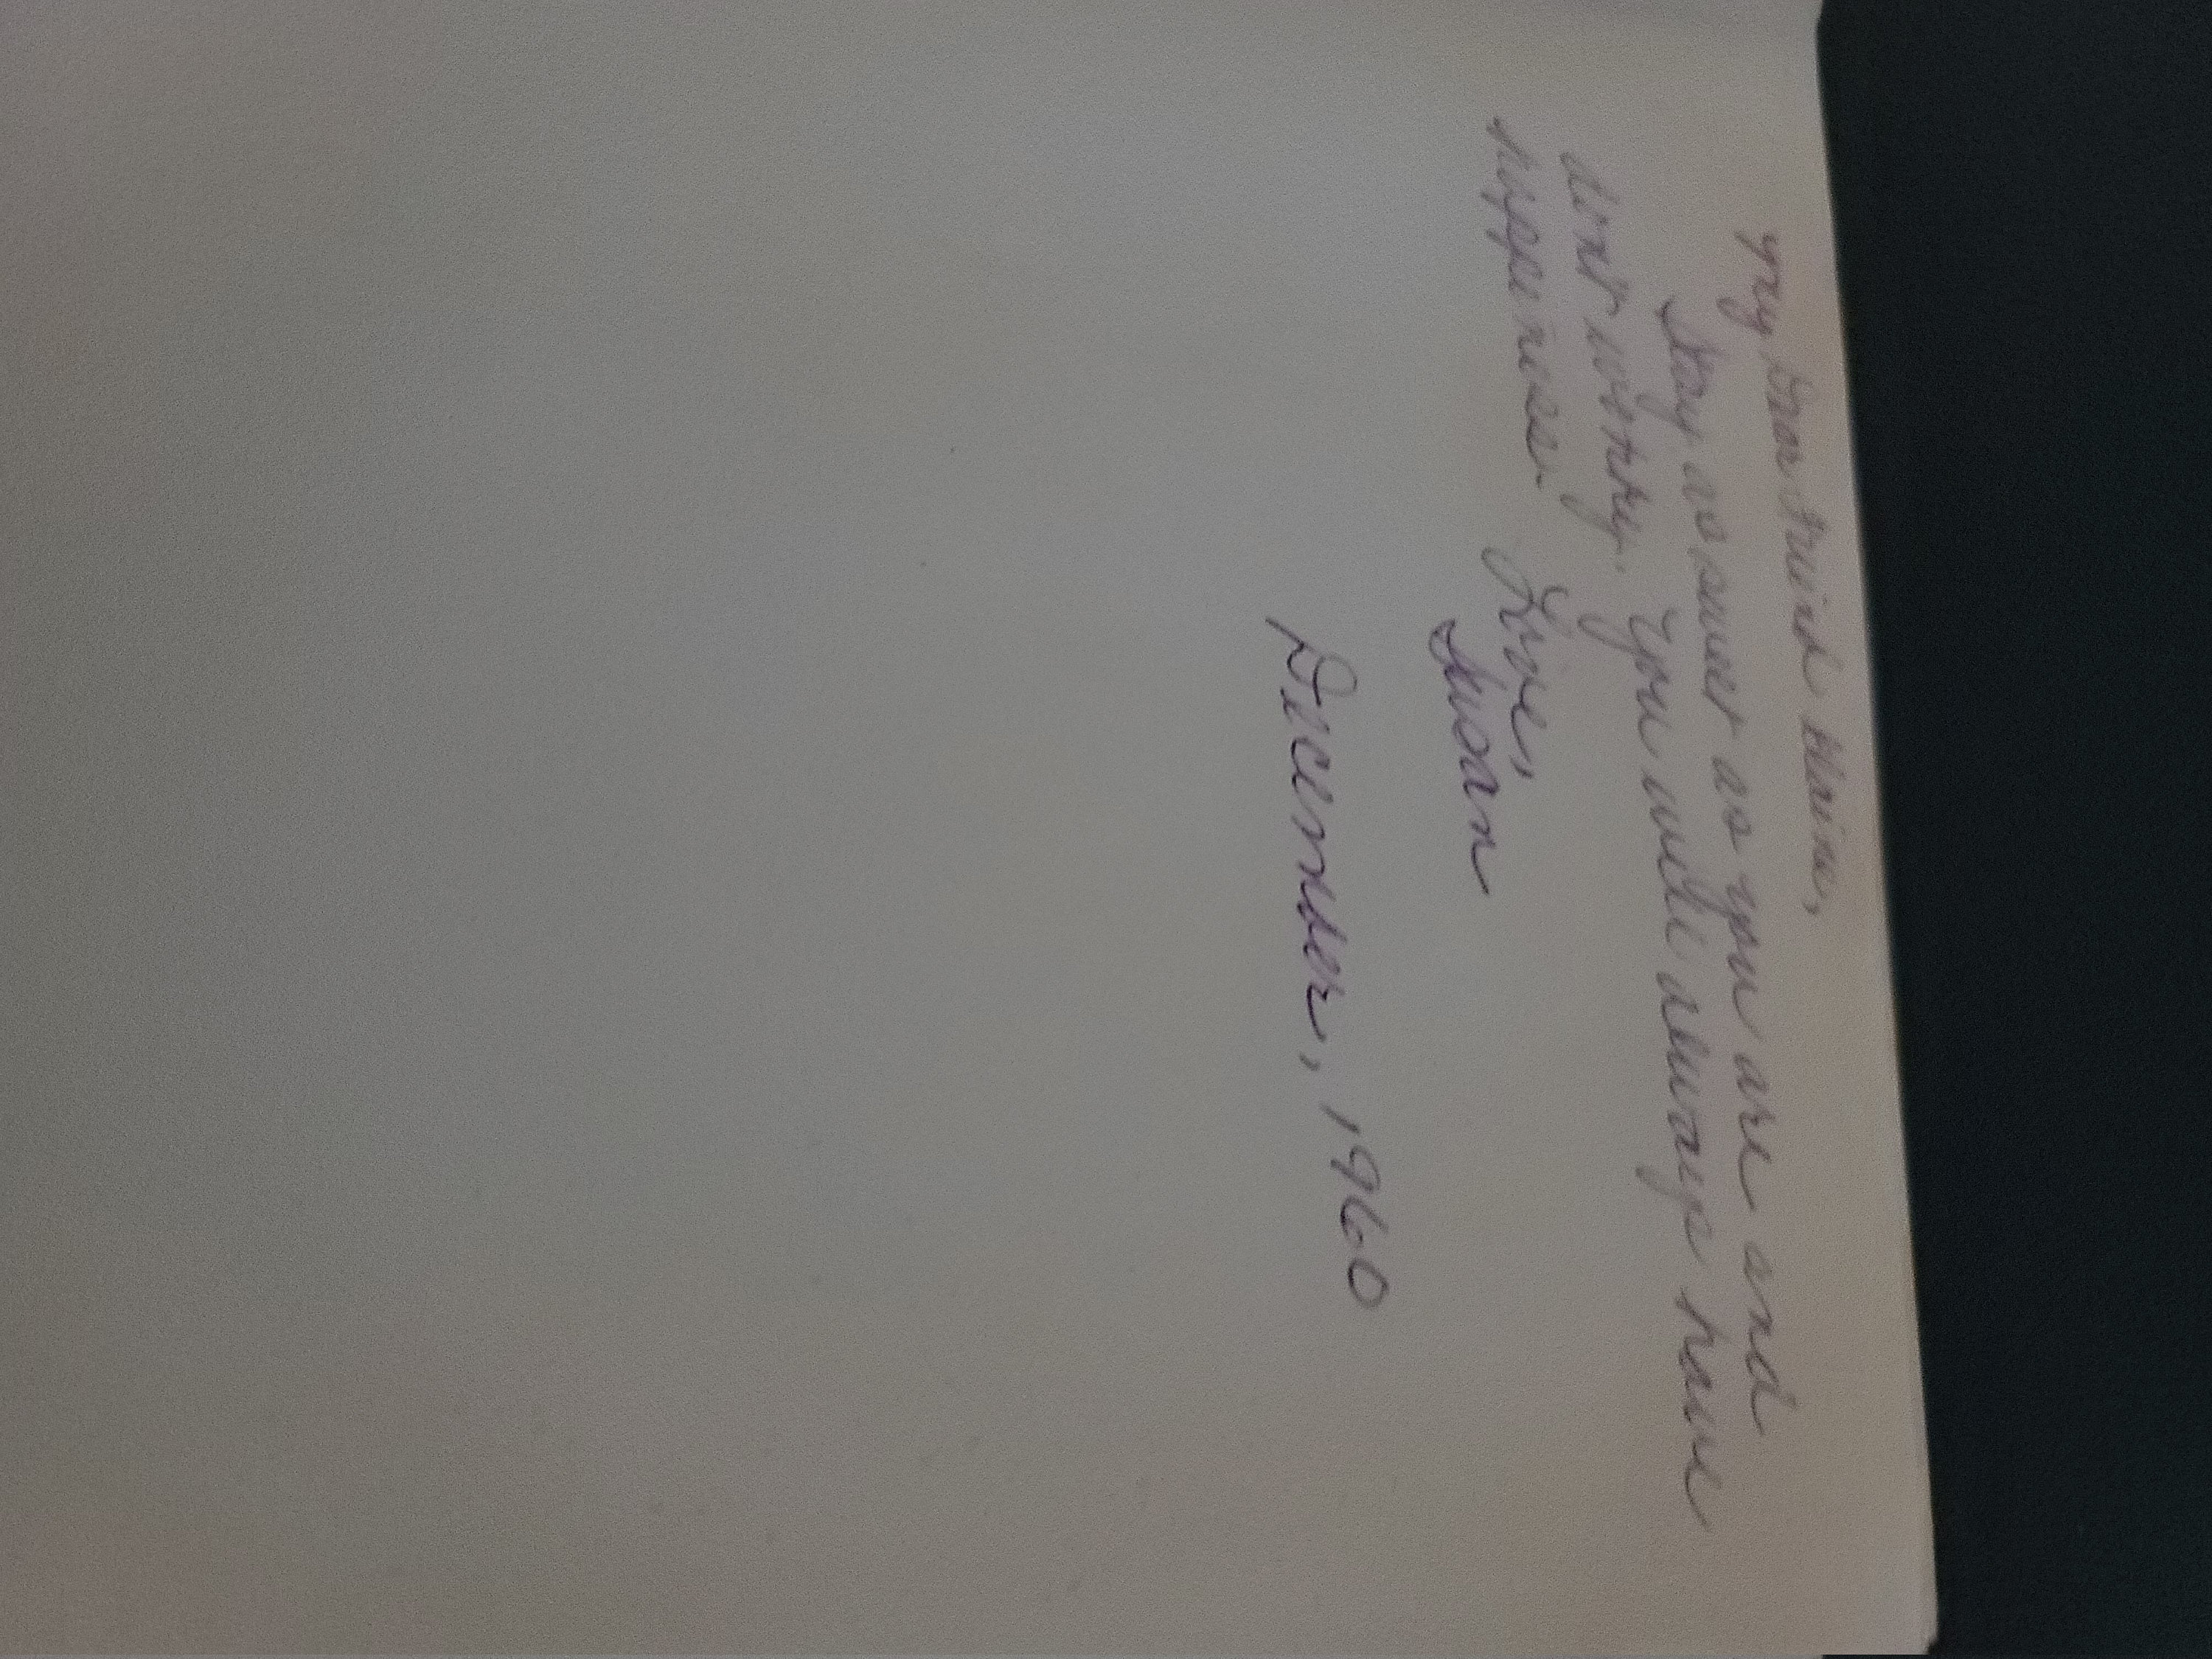 My Dear Friend Elaine,
Stay as sweet as you are and
dont worry. You will always have
happiness.
Love,
Susan
December, 1960